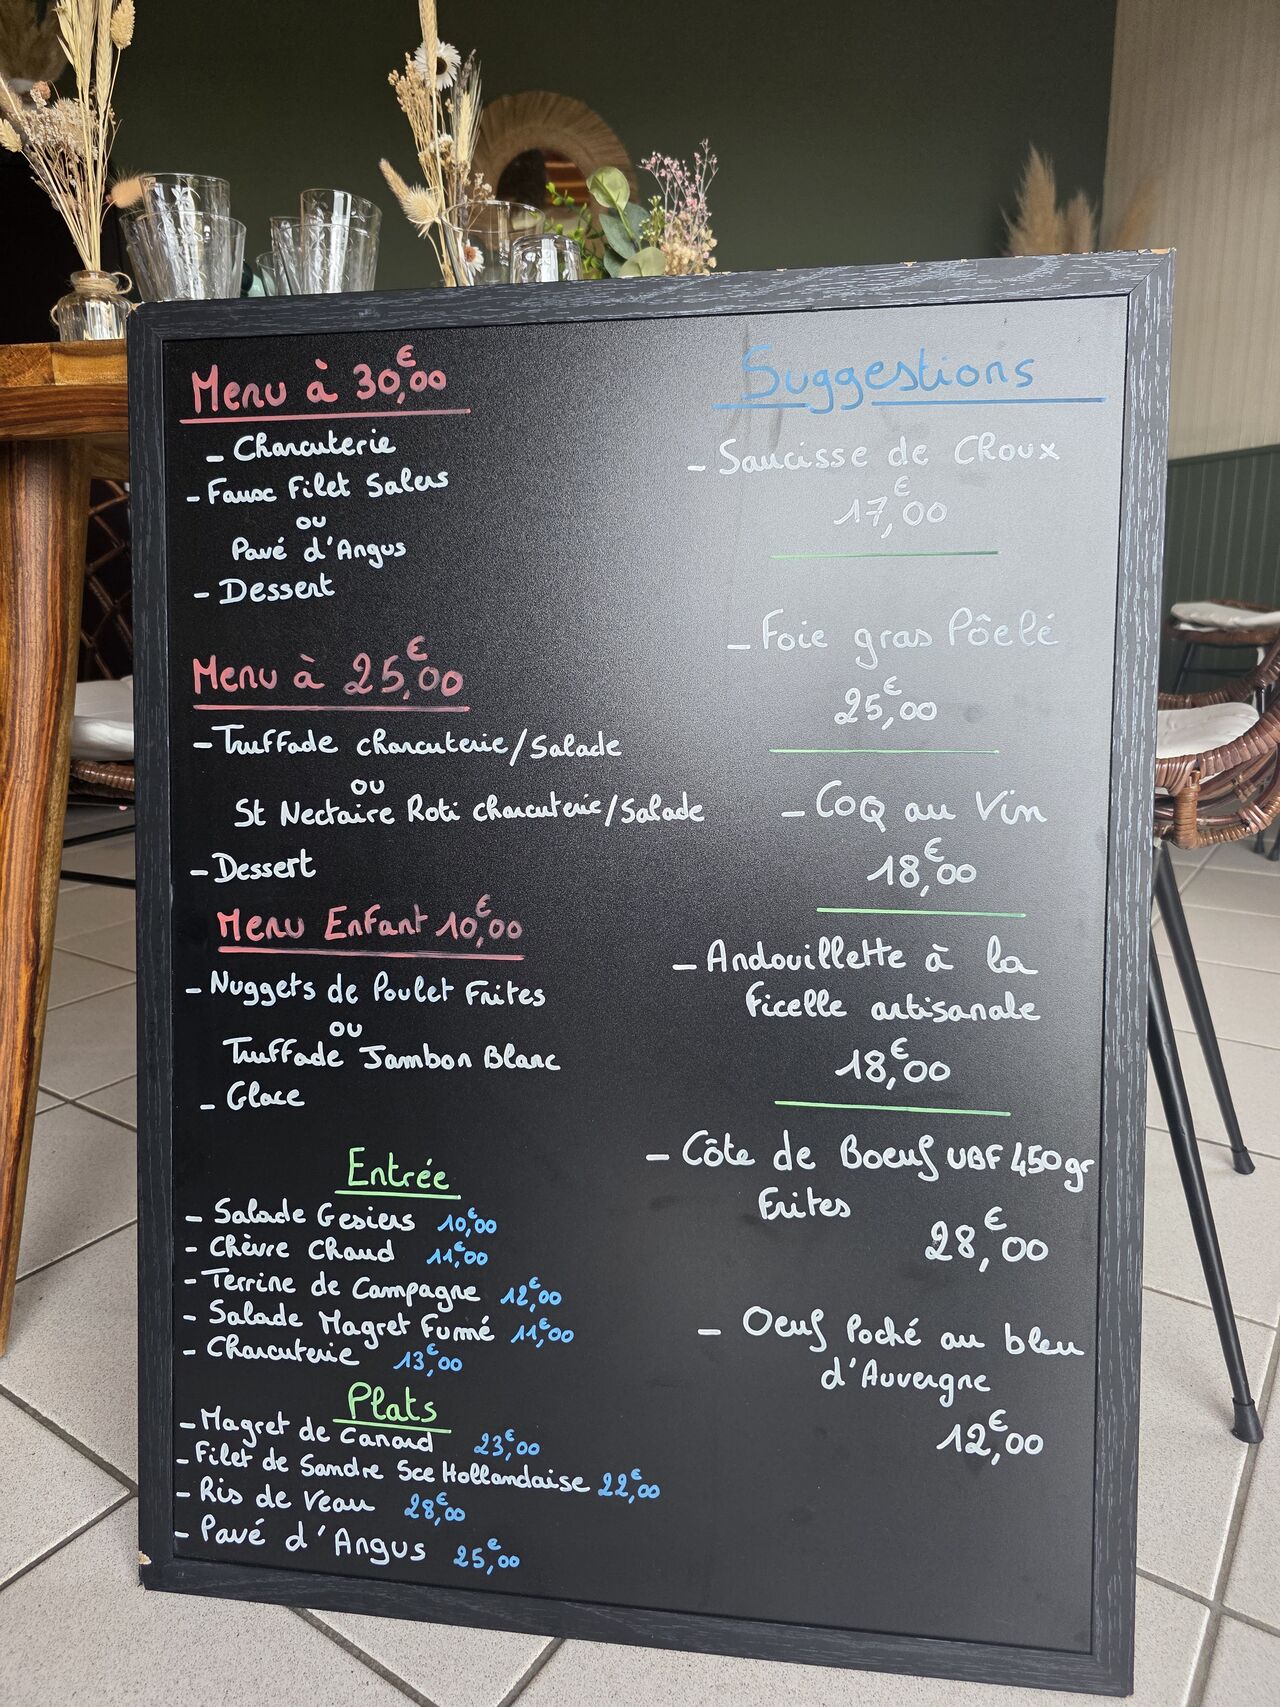 Menu à 30,00€
- Charcuterie
- Faux Filet Salers
ou
Pavé d'Angus
- Dessert
Menu à 25,00€
- Truffade charcuterie/Salade
ou
St Nectaire Roti charcuterie/Salade
- Dessert
Menu Enfant 10,00€
- Nuggets de Poulet Frites
ou
Truffade Jambon Blanc
- Glace
Entrée
- Salade Gesiers 10,00€
- Chèvre Chaud 11,00€
- Terrine de Campagne 12,00€
- Salade Magret Fumé 11,00€
- Charcuterie 13,00€
Plats
- Magret de Canard 23,00€
- Filet de Sandre Sce Hollandaise 22,00€
- Ris de Veau 28,00€
- Pavé d'Angus 25,00€
Suggestions
- Saucisse de CRoux
17,00€
- Foie gras Pôelé
25,00€
- Coq au Vin
18,00€
- Andouillette à la
ficelle artisanale
18,00€
- Côte de Boeuf UBF 450gr
Frites
28,00€
- Oeuf Poché au bleu
d'Auvergne
12,00€